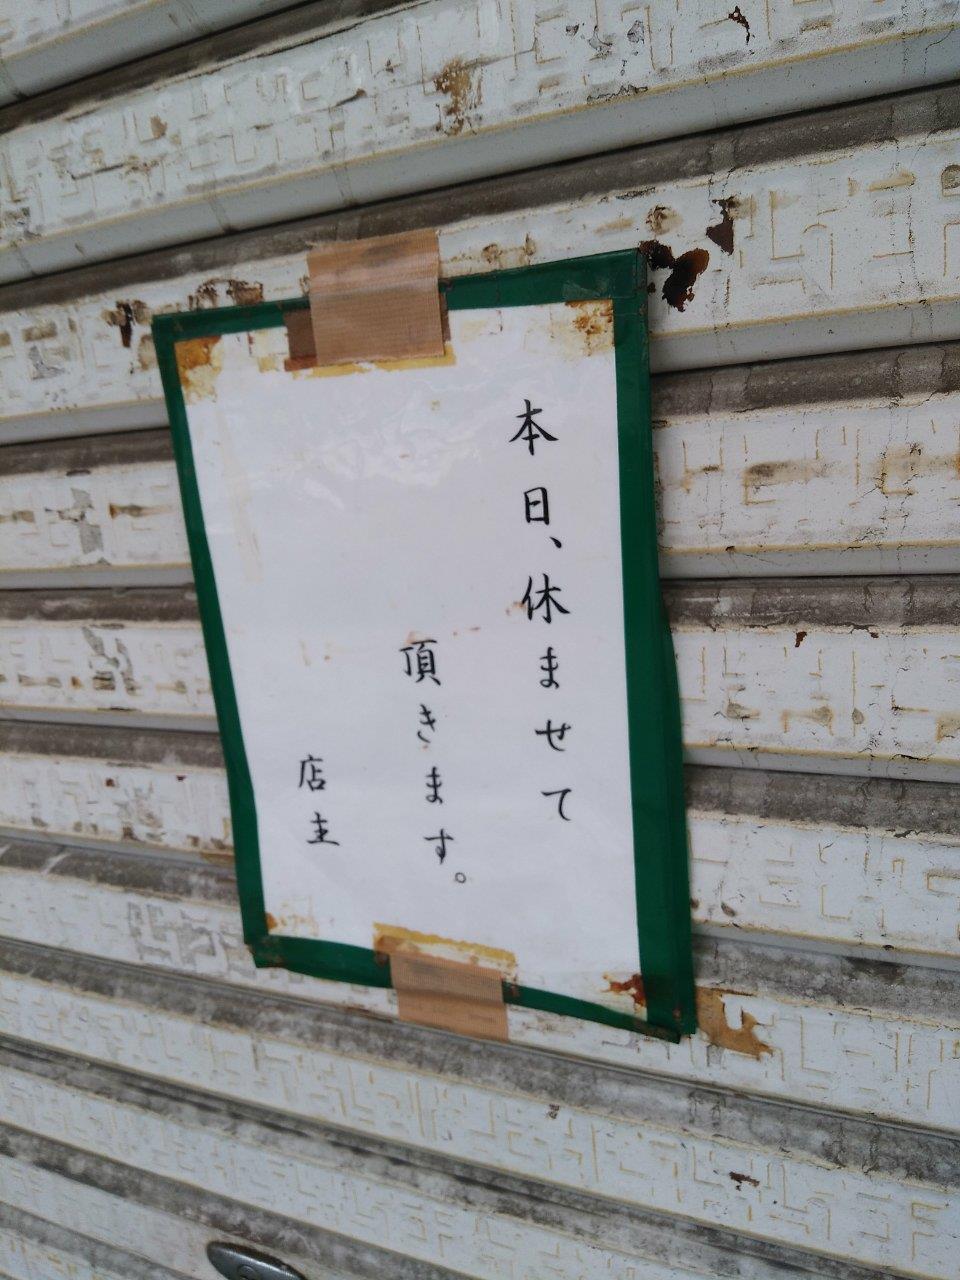 本日、休ませて
頂きます。
店主